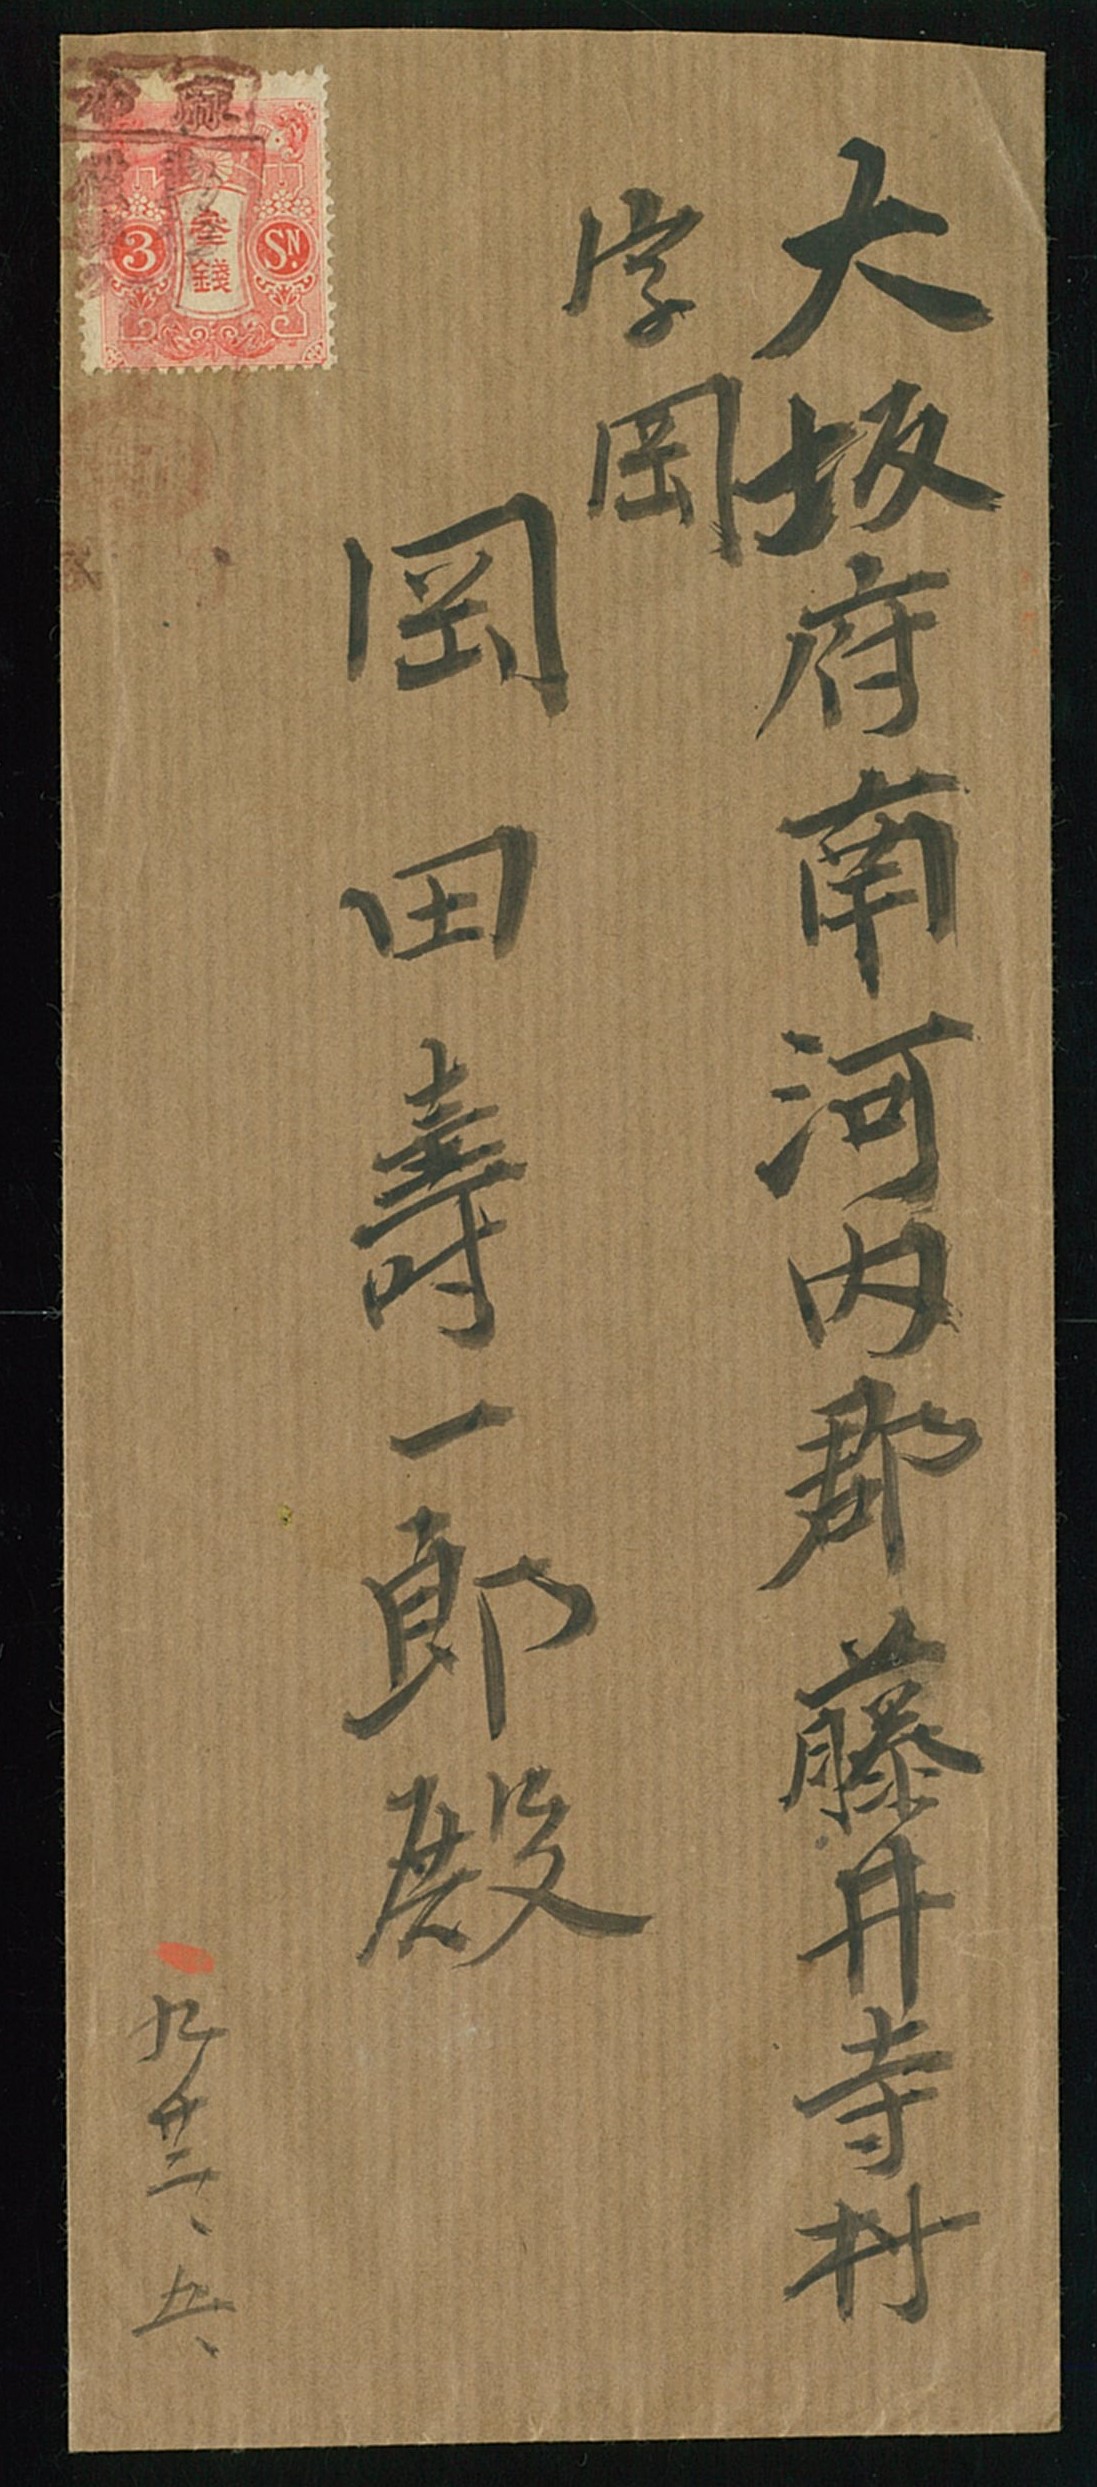 大坂府南河内郡藤井寺村
字岡
岡田壽一郎殿
麻布
3
参銭
SN.
九廿二、五